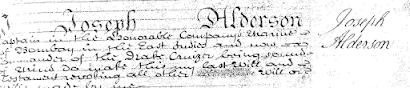 Joseph Alderson
Captain in the Honorable Company's Marine
Bombay in the East Indies and now
Commander of the Snake Cruizer being sound
Mind do make this my last Will and
Testament revoking all other Will or
made by me
Joseph
Alderson